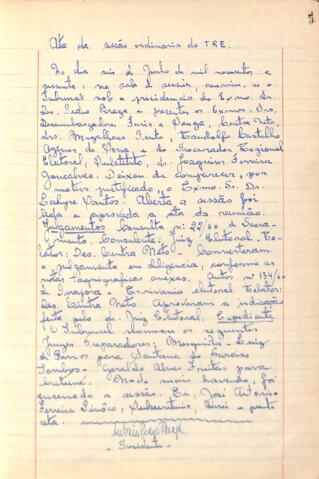 Ata da sessão ordinaria do T.R.E.
Ao dia seis de Junho de mil novecentos e
sessenta, na sala de sessões, reuniu-se o
Tribunal sob a presidencia do Exmo. Sr.
Dr. Pedro Braga e presentes os Exmos. Srs.
Desembargadores Faria e Souza, Cintra Neto,
drs. Magalhães Pinto, Candolfo Castilho
de Pena e do Procurador Regional
Eleitoral, Substituto, dr. Joaquim Ferreira
Gonçalves. Deixou de comparecer, por
motivo justificado, o Exmo. Sr. Dr.
Santos. Aberta a sessão foi
lida e aprovada a ata da reunião.
Julgamentos Consulta nº 22/60 de Sacra-
mento. Consulente: Juiz Eleitoral. Re-
lator: Des. Cintra Neto - Converteram
o julgamento em diligencia, conforme as
notas taquigraficas anexas. Autos nº 134/60
de - Escrivania eleitoral Relator:
Des. Cintra Neto Aprovaram a indicação
feita pelo dr. Juiz Eleitoral. Expediente
O Tribunal nomeou os seguintes
Juizes Preparadores: Mesquita - Luiz
de Barros para Santana do
Tombos - Geraldo Alves Freitas para
Nada mais havendo, foi
encerrada a sessão. Eu, José Antonio
Ferreira Subsecretario, a presente
ata.
- Presidente -